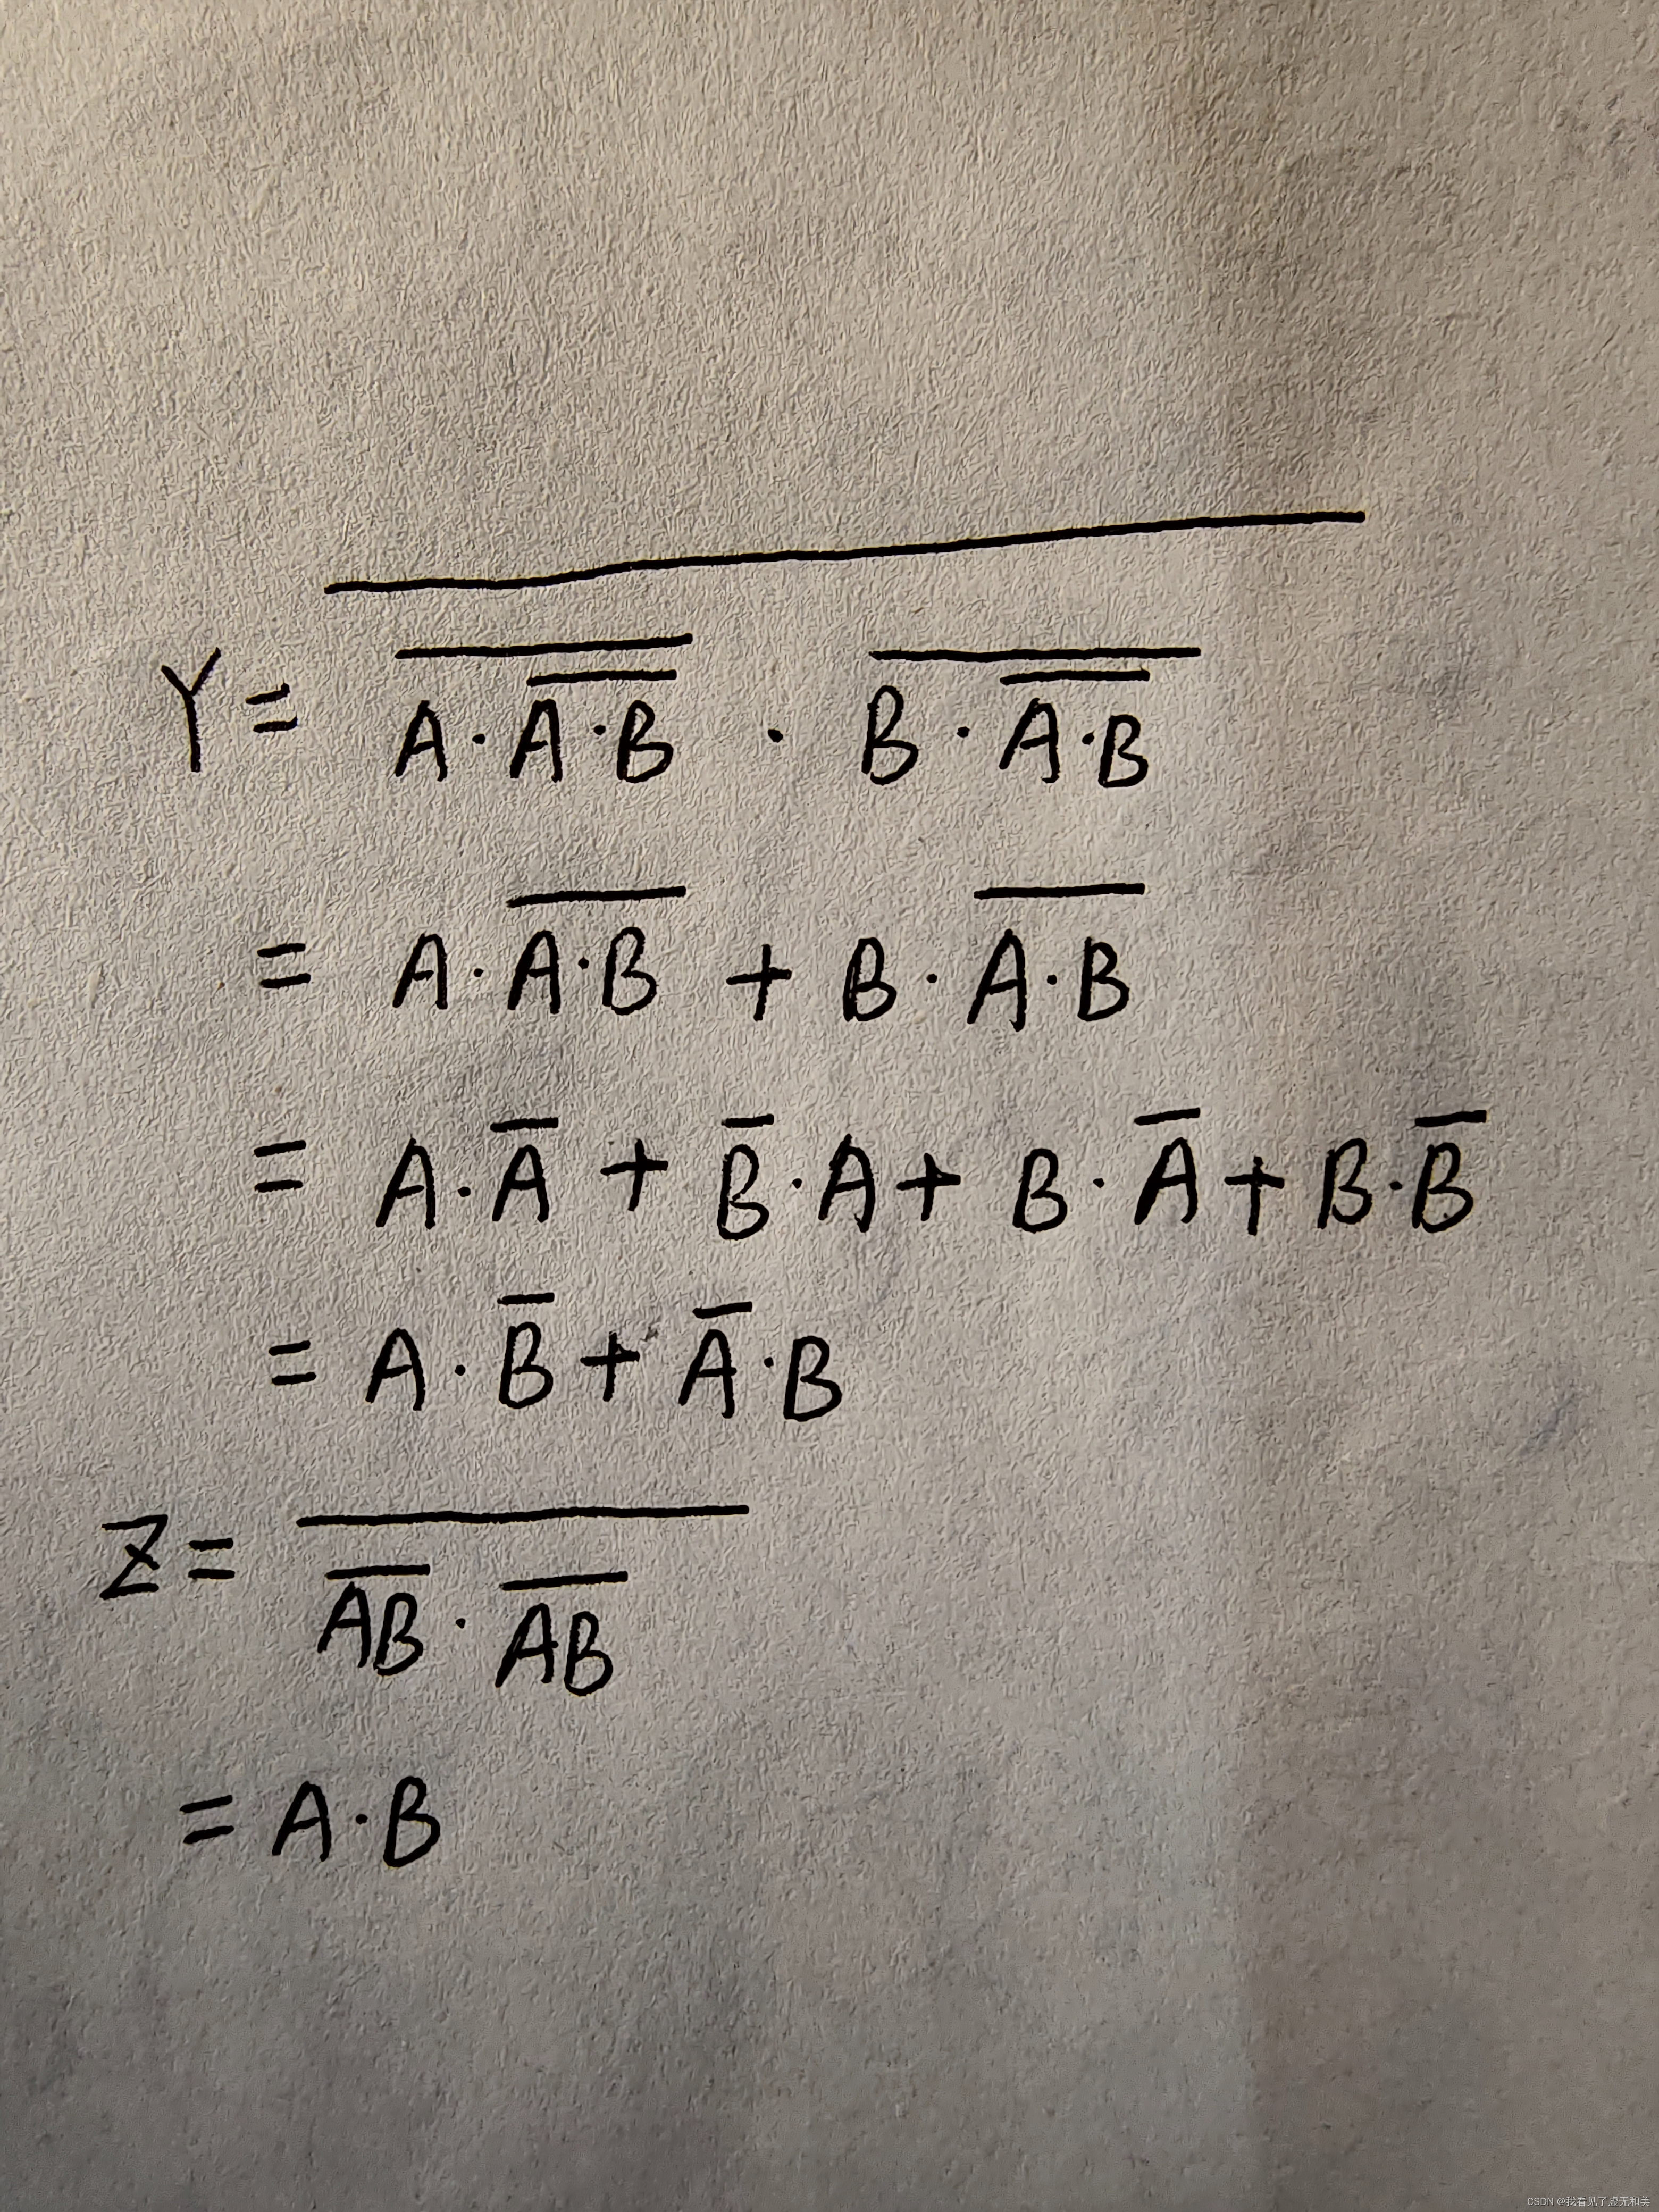 Y = \overline{\overline{A·\overline{A·B}} · \overline{B·\overline{A·B}}}
= A·\overline{A·B} + B·\overline{A·B}
= A·\overline{A} + \overline{B}·A + B·\overline{A} + B·\overline{B}
= A·\overline{B} + \overline{A}·B
Z = \overline{\overline{AB}·\overline{AB}}
= A·B
CSDN @我看见了虚无和美